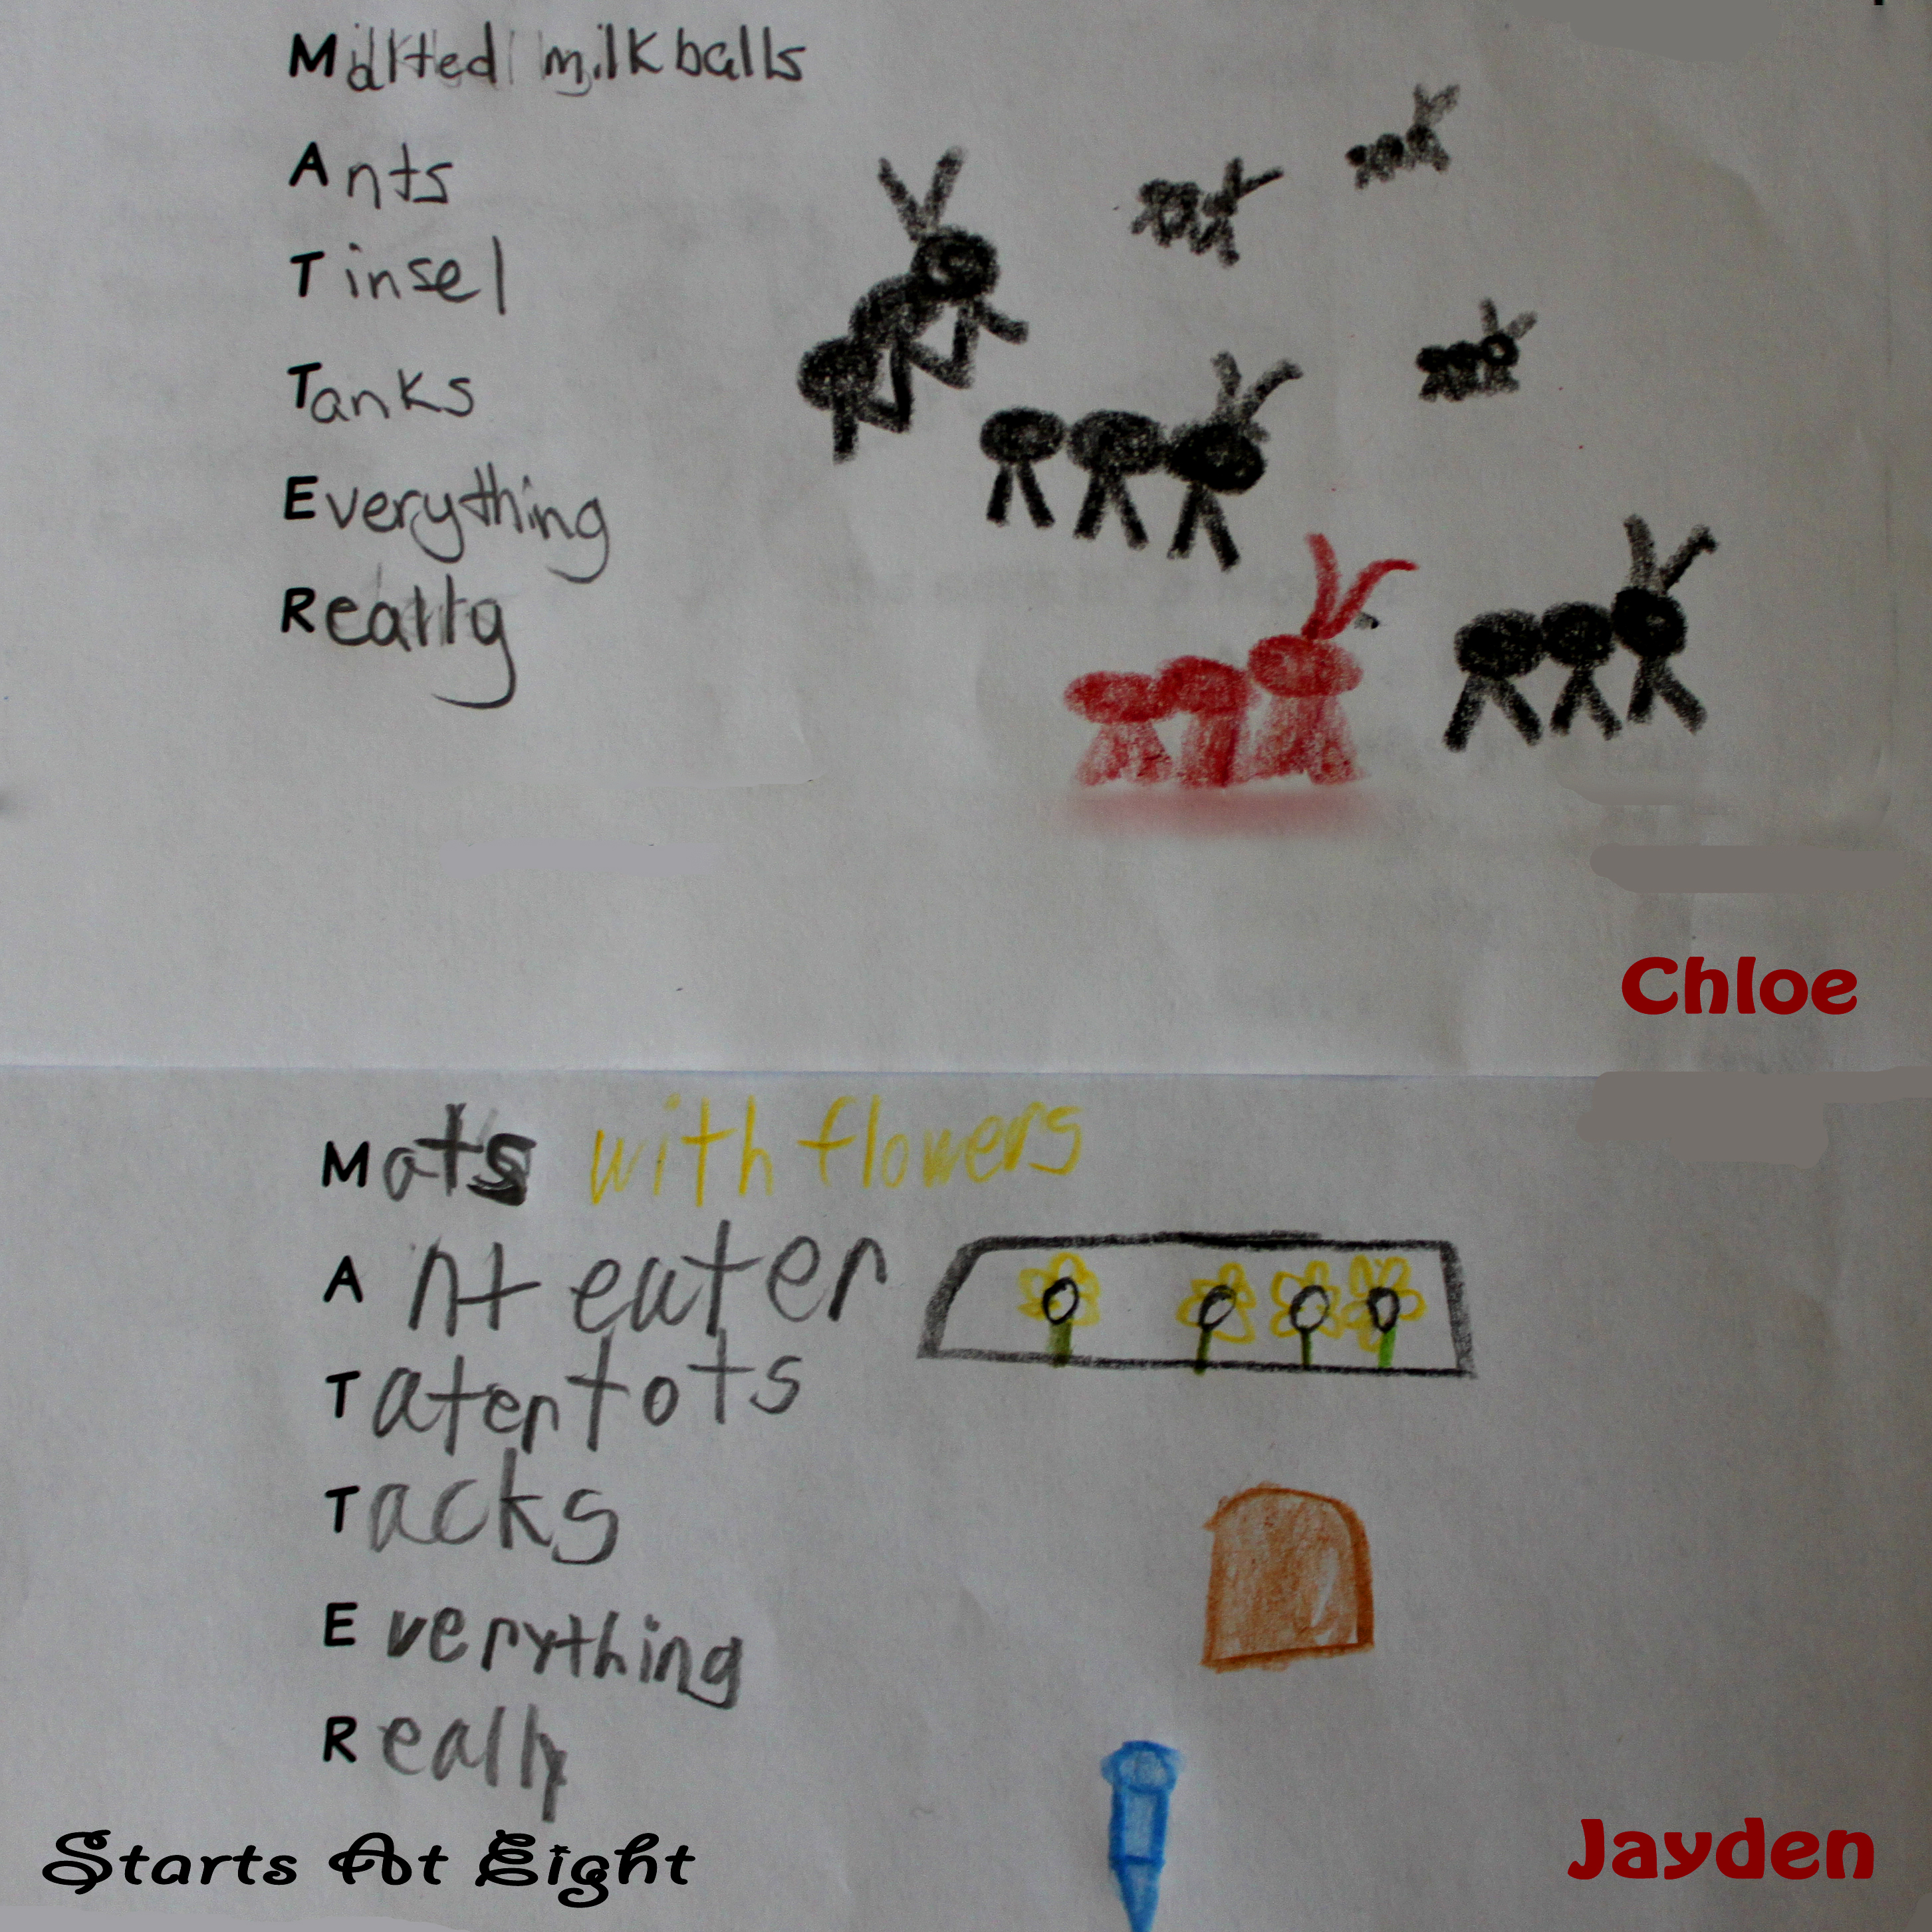 Malted milk balls
Ants
Tinsel
Tanks
Everything
Really
Chloe
Mats with flowers
Ant eater
Tater tots
Tacks
Everything
Really
Starts At Eight
Jayden